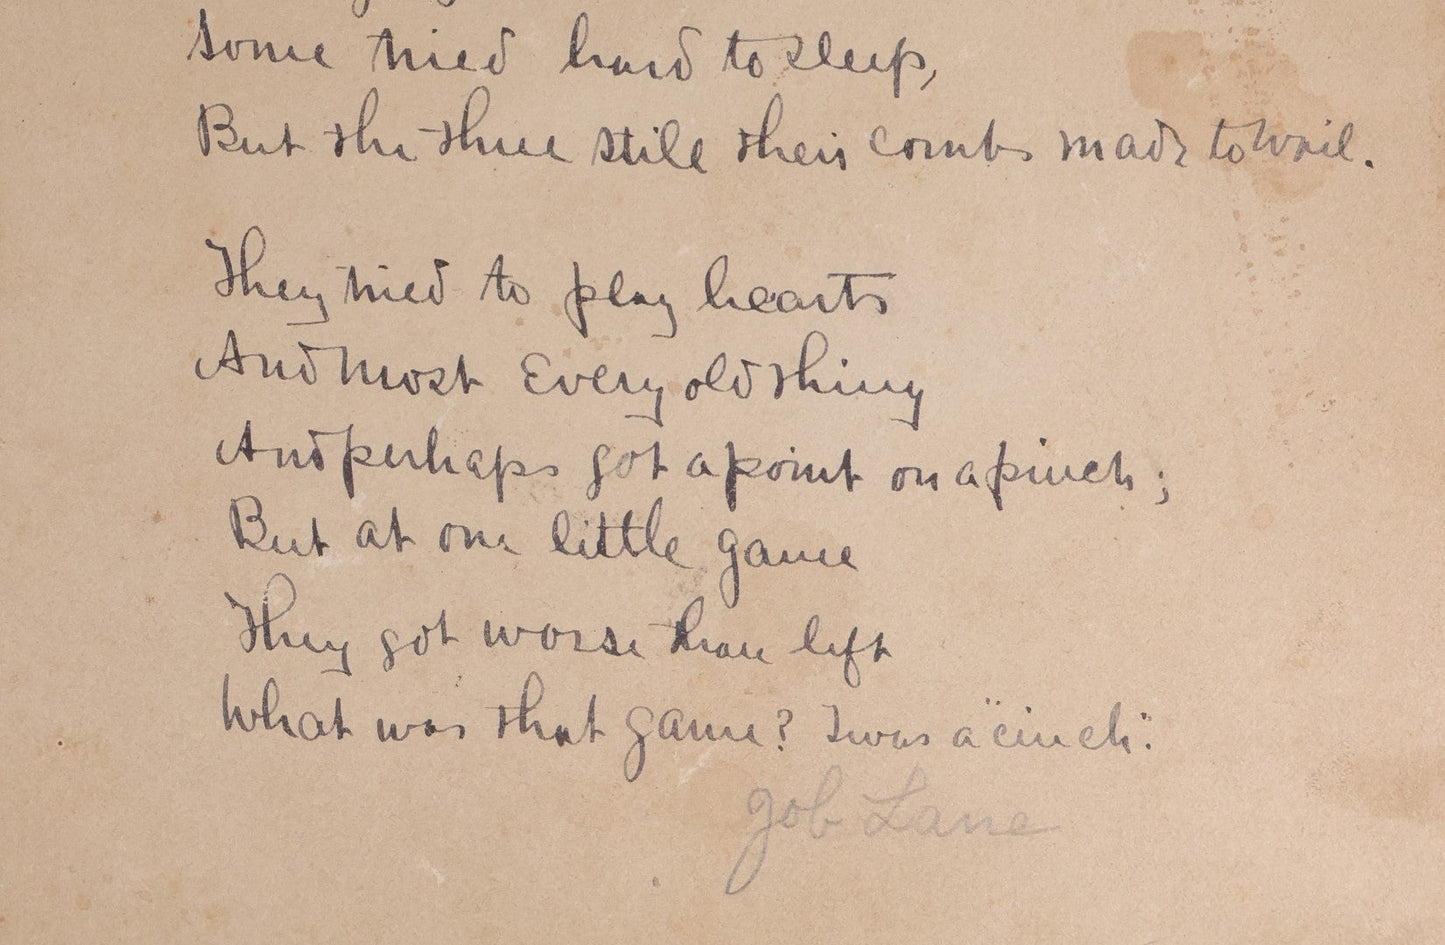 Some tried hard to sleep,
But the three stile their combs made to wail.
They tried to play hearts
And most every old thing
And perhaps got a point on a pinch;
But at one little game
They got worse than left
What was that game? Twas a "cinch".
Job Lane